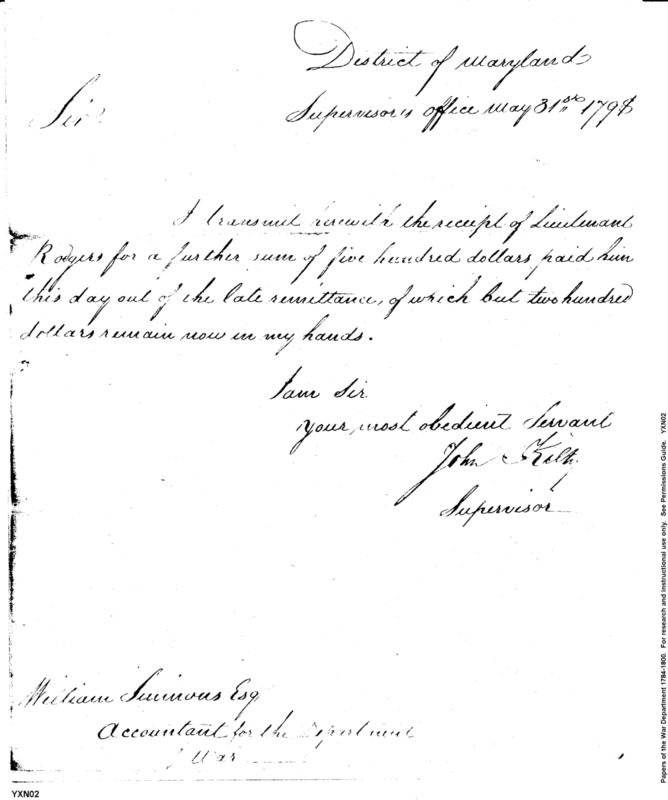 District of Maryland
Supervisor's office May 31st 1798
Sir
I transmit herewith the receipt of Lieutenant
Rodgers for a further sum of five hundred dollars paid him
this day out of the late remittance, of which but two hundred
dollars remain now in my hands.
I am Sir
your most obedient Servant
John Kilty
Supervisor
William Simmons Esq
Accountant for the Department
of War
YXN02
Papers of the War Department 1784-1800. For research and instructional use only. See Permissions Guide. YXN02